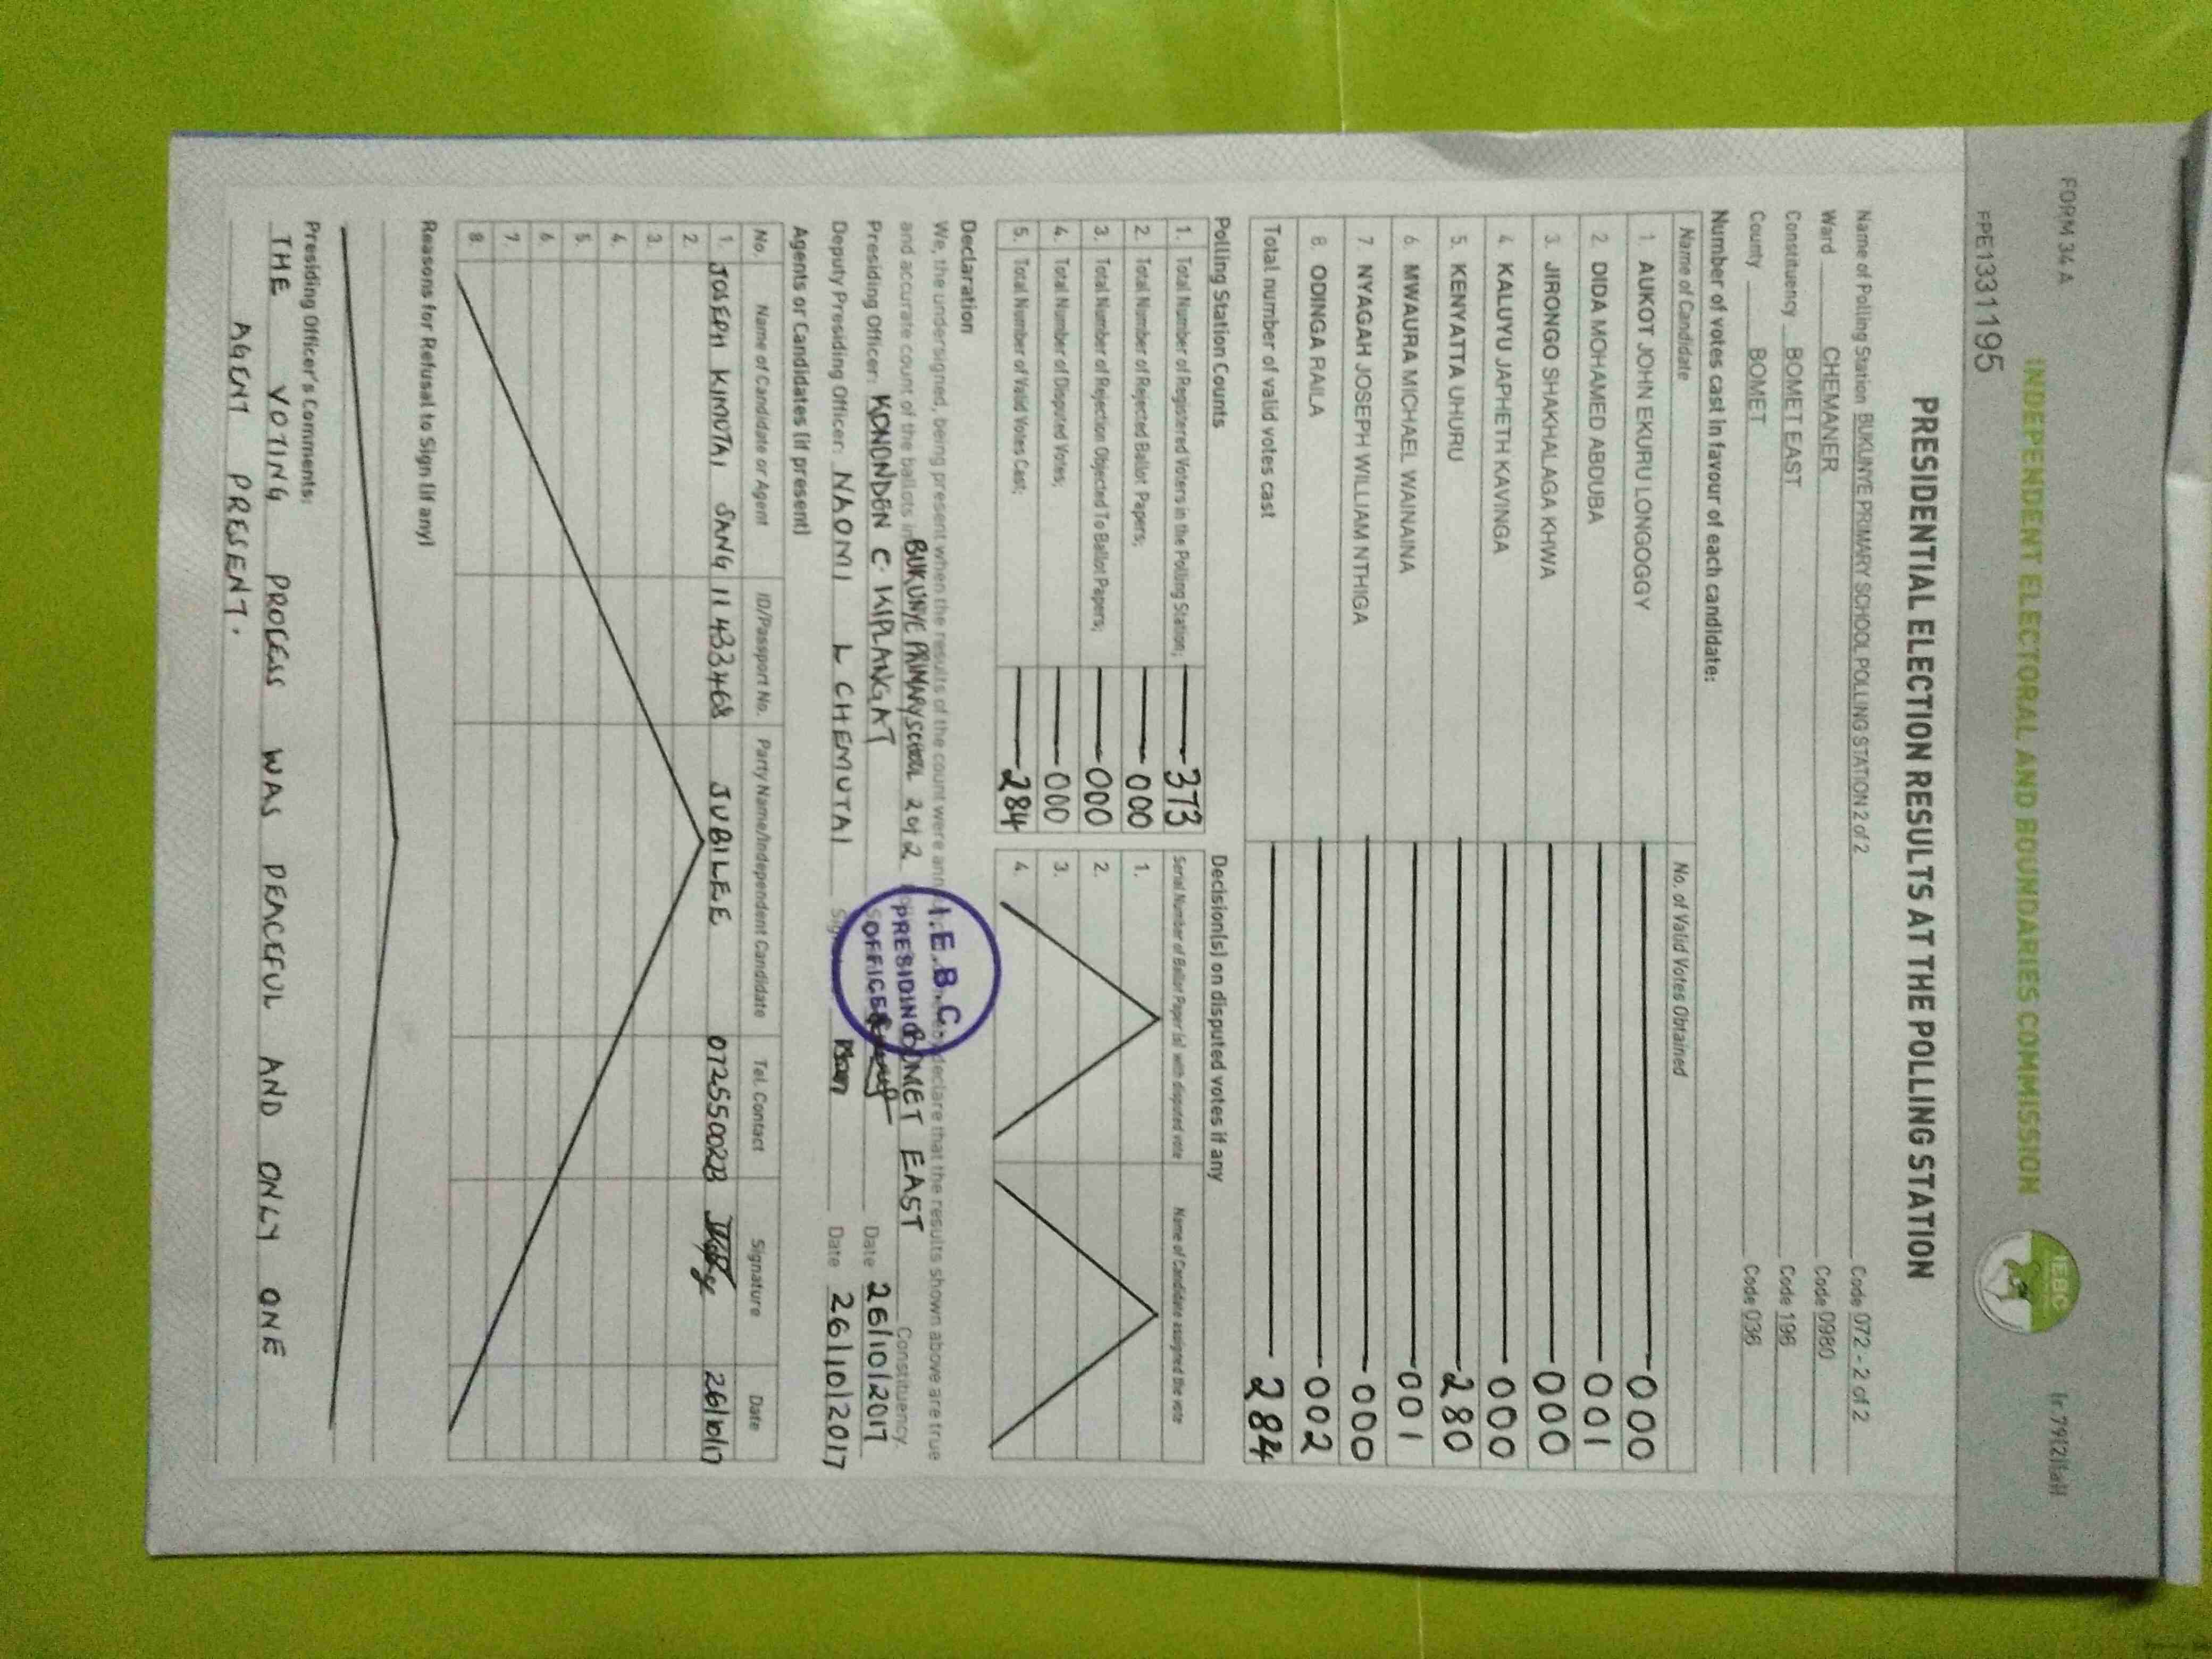 FORM 34 A
INDEPENDENT ELECTORAL AND BOUNDARIES COMMISSION
IEBC
FPE1331195
PRESIDENTIAL ELECTION RESULTS AT THE POLLING STATION
Name of Polling Station BUKUNYE PRIMARY SCHOOL POLLING STATION 2 of 2 Code 072 - 2 of 2
Ward CHEMANER Code 0980
Constituency BOMET EAST Code 196
County BOMET Code 036
Number of votes cast in favour of each candidate:
Name of Candidate No. of Valid Votes Obtained
1. AUKOT JOHN EKURU LONGOGGY 000
2. DIDA MOHAMED ABDUBA 001
3. JIRONGO SHAKHALAGA KHWA 000
4. KALUYU JAPHETH KAVINGA 000
5. KENYATTA UHURU 280
6. MWAURA MICHAEL WAINAINA 001
7. NYAGAH JOSEPH WILLIAM NTHIGA 000
8. ODINGA RAILA 002
Total number of valid votes cast 284
Polling Station Counts
1. Total Number of Registered Voters in the Polling Station; 373
2. Total Number of Rejected Ballot Papers; 000
3. Total Number of Rejection Objected To Ballot Papers; 000
4. Total Number of Disputed Votes; 000
5. Total Number of Valid Votes Cast; 284
Decision(s) on disputed votes if any
Serial Number of Ballot Paper (s) with disputed vote Name of Candidate assigned the vote
1.
2.
3.
4.
Declaration
We, the undersigned, being present when the results of the count were declare that the results shown above are true
and accurate count of the ballots in BUKUNYE PRIMARY SCHOOL 2 of 2 BOMET EAST Constituency
Presiding Officer: KONONDON C. KIPLANGAT Date 26/10/2017
Deputy Presiding Officer: NAOMI L CHEMUTAI Date 26/10/2017
I.E.B.C.
PRESIDING
OFFICER
Agents or Candidates (if present)
No. Name of Candidate or Agent ID/Passport No. Party Name/Independent Candidate Tel. Contact Signature Date
1. JOSEPH KIMUTAI SANG 11433468 JUBILEE 26/10/17
2.
3.
4.
5.
6.
7.
8.
Reasons for Refusal to Sign (if any)
Presiding Officer's Comments:
THE VOTING PROCESS WAS PEACEFUL AND ONLY ONE
AGENT PRESENT.